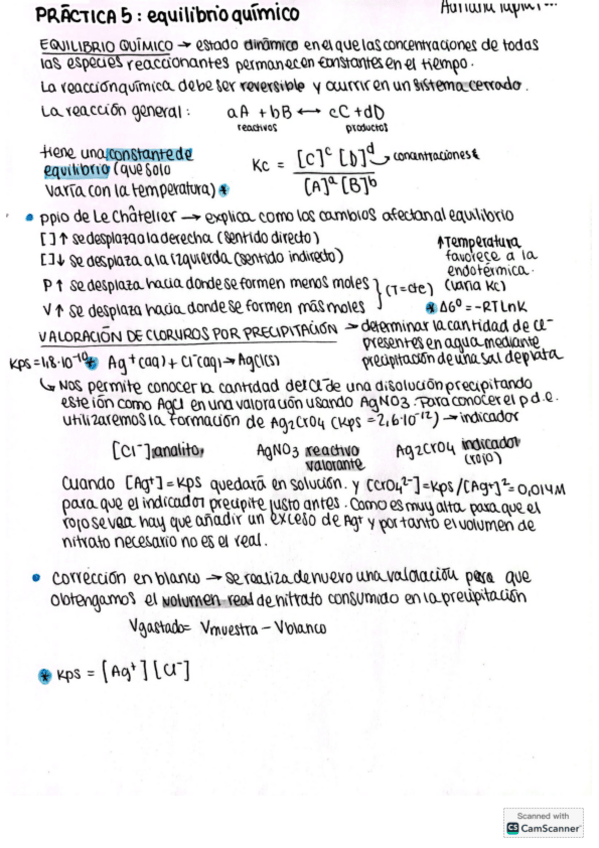 PRÁCTICA 5: equilibrio químico
EQUILIBRIO QUÍMICO → estado dinámico en el que las concentraciones de todas
las especies reaccionantes permanecen constantes en el tiempo.
La reacción química debe ser reversible y ocurrir en un sistema cerrado.
La reacción general: aA + bB ⟷ cC + dD
reactivos productos
tiene una constante de
equilibrio (que solo
varía con la temperatura) *
Kc = [C]^c [D]^d / [A]^a [B]^b → concentraciones
• ppio de Le Châtelier → explica como los cambios afectan al equilibrio
[ ]↑ se desplaza a la derecha (sentido directo)
[ ]↓ se desplaza a la izquierda (sentido indirecto)
P↑ se desplaza hacia donde se formen menos moles
V↑ se desplaza hacia donde se formen más moles } (T=cte)
↑Temperatura
favorece a la
endotérmica.
(varía Kc)
* ΔG⁰ = -RTLnK
VALORACIÓN DE CLORUROS POR PRECIPITACIÓN → determinar la cantidad de Cl⁻
presentes en agua mediante
precipitación de una sal de plata
Kps=1,8·10⁻¹⁰ * Ag⁺(aq) + Cl⁻(aq) → AgCl(s)
↳ Nos permite conocer la cantidad del Cl⁻ de una disolución precipitando
este ión como AgCl en una valoración usando AgNO3. Para conocer el p.d.e.
utilizaremos la formación de Ag2CrO4 (Kps = 2,6·10⁻¹²) → indicador
[Cl⁻] analito, AgNO3 reactivo valorante Ag2CrO4 indicador (rojo)
Cuando [Ag⁺] = Kps quedará en solución. y [CrO4²⁻] = Kps/[Ag⁺]² = 0,014M
para que el indicador precipite justo antes. Como es muy alta para que el
rojo se vea hay que añadir un exceso de Ag⁺ y por tanto el volumen de
nitrato necesario no es el real.
• Corrección en blanco → se realiza de nuevo una valoración para que
obtengamos el volumen real de nitrato consumido en la precipitación
Vgastado = Vmuestra - Vblanco
* Kps = [Ag⁺][Cl⁻]
Scanned with
CS CamScanner